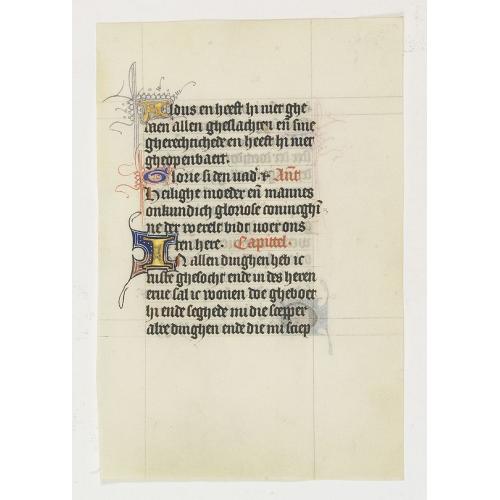 Aldus en heeft hi nier ghe
daen allen gheslachten eñ sine
gherechtichede en heeft hi nier
gheopenbaert.
Glorie si den vad' & Añt
Heilighe moeder eñ mannes
onkundich gloriose coninghī
ne der werelt bidt voer ons
ten here. Capittel.
In allen dinghen heb ic
ruste ghesocht ende in des heren
erue sal ic wonen doe gheboet
hi ende seghede mi die scepper
alre dinghen ende die mi sciep